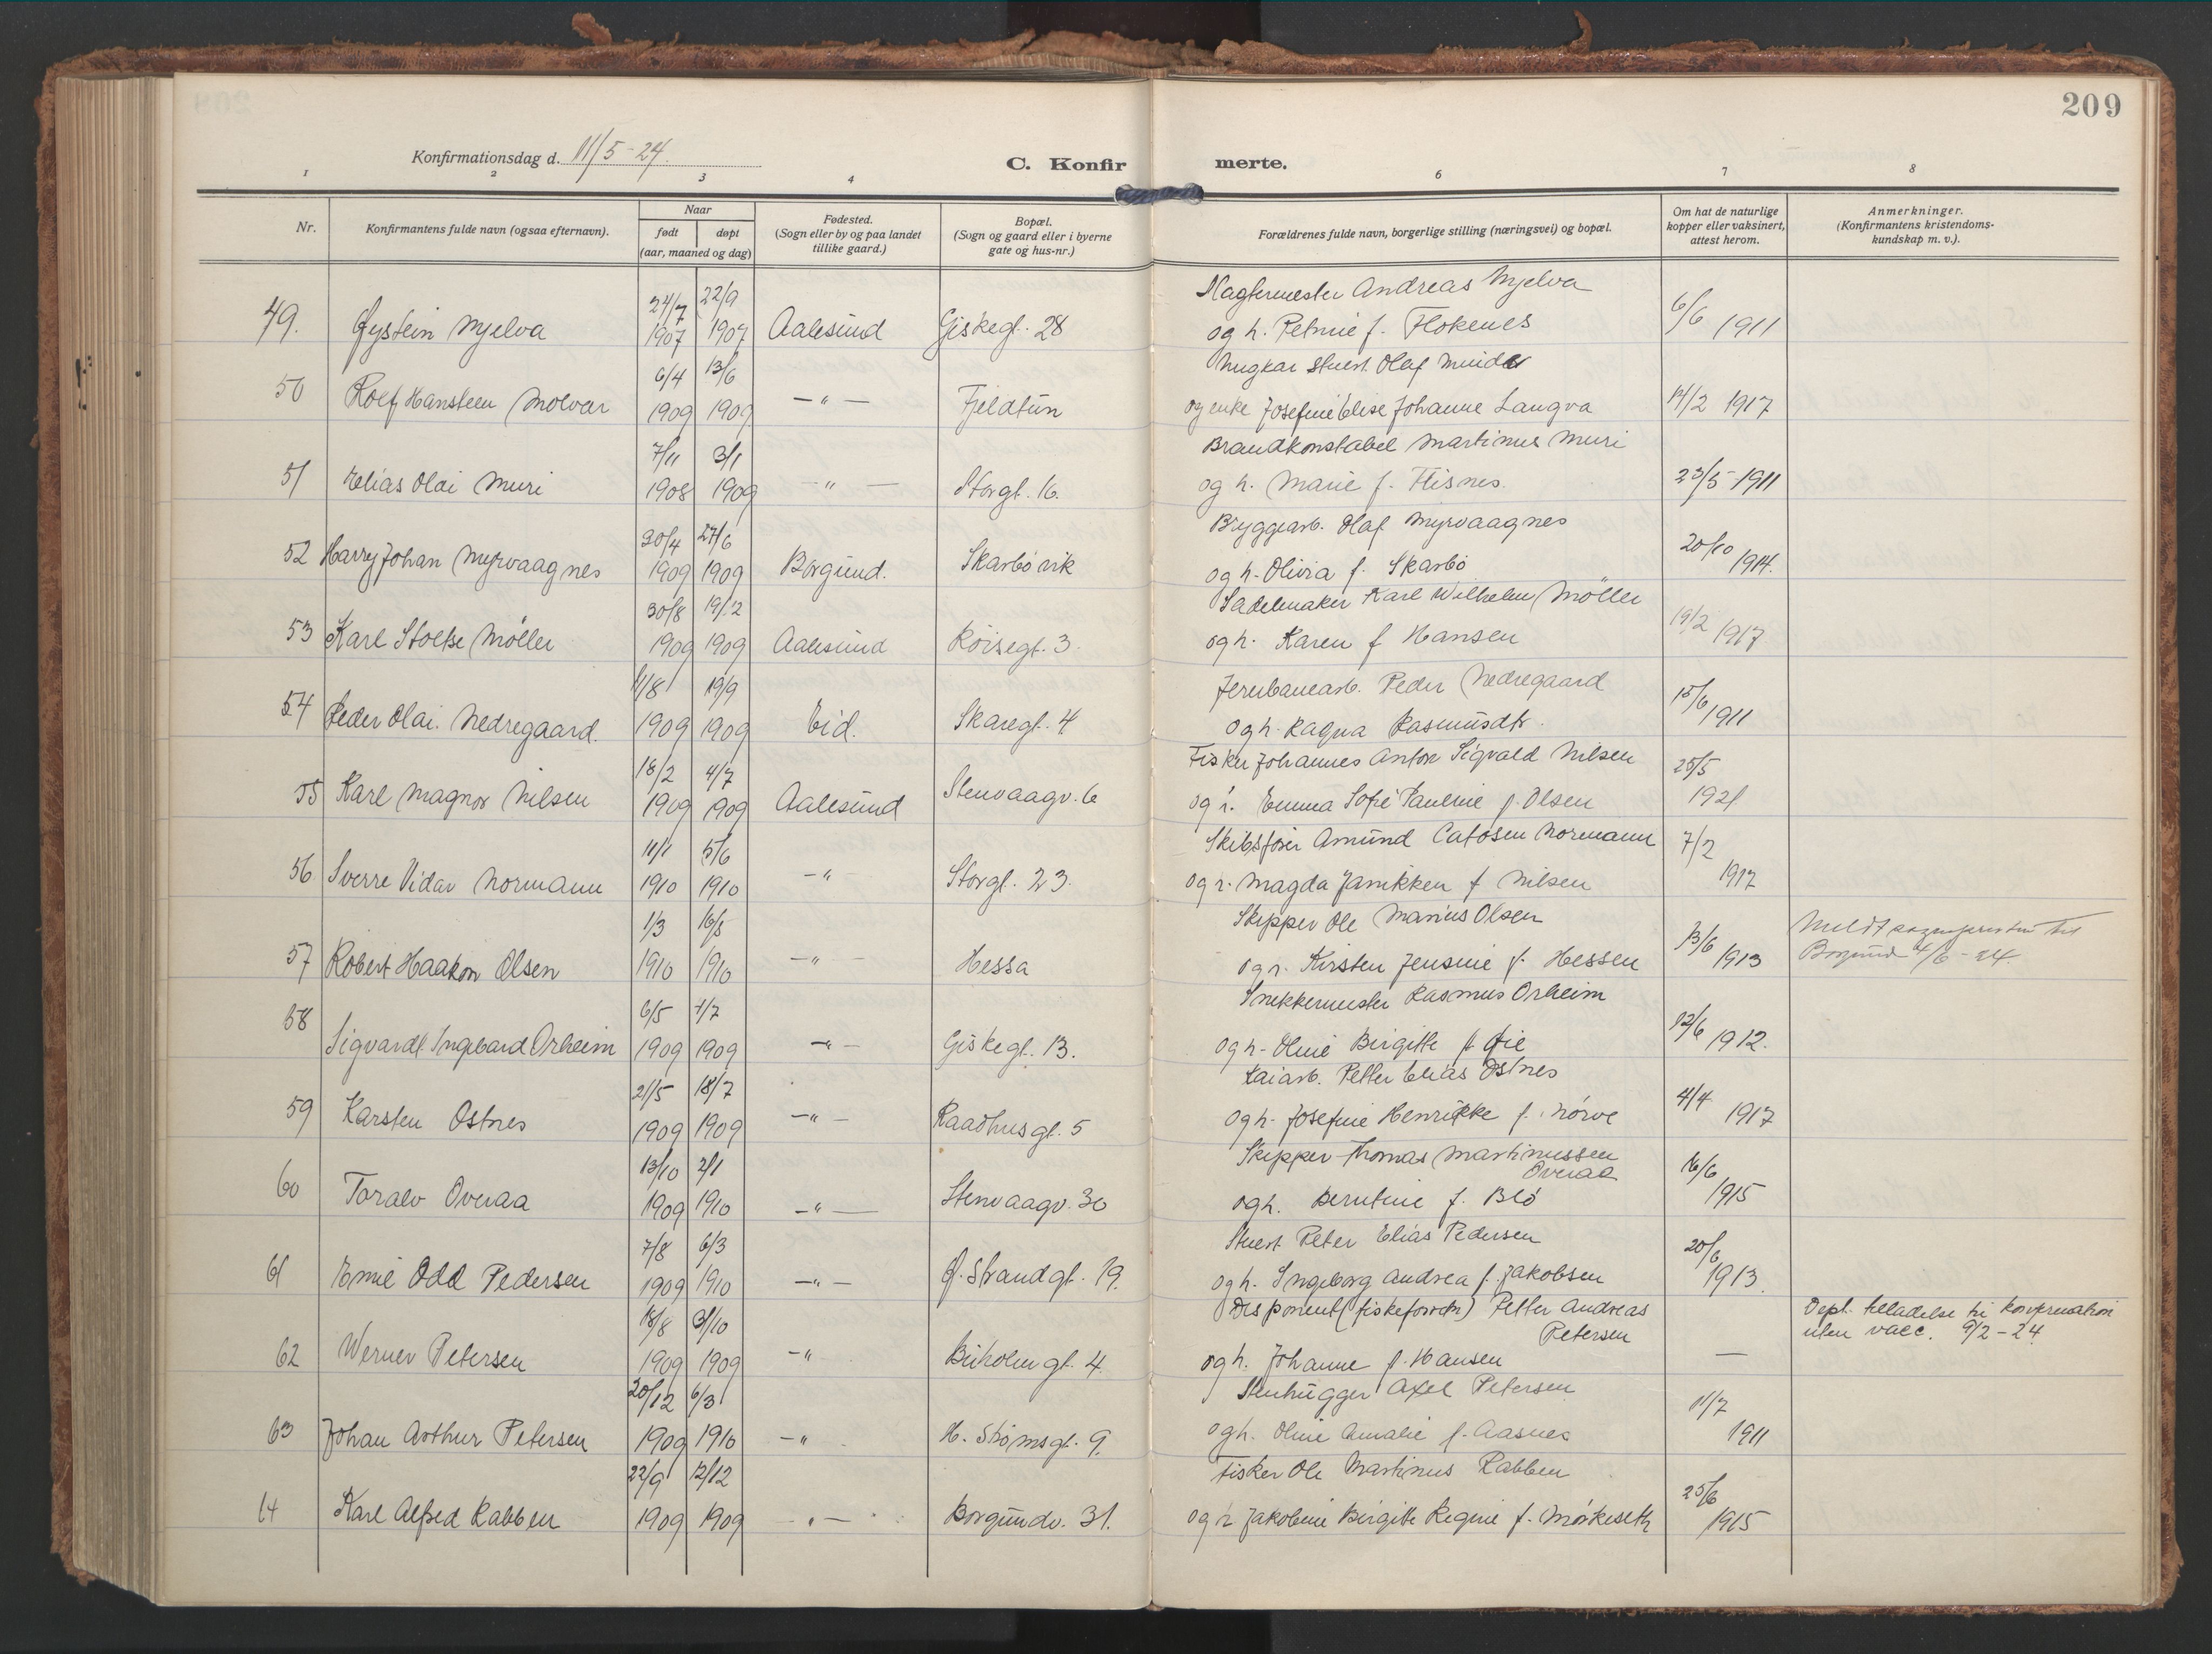 209
Konfirmationsdag d. 11/5-24.
C. Konfir merte.
1 2 3 4 6 7 8
Nr.
Konfirmantens fulde navn (ogsaa efternavn).
Naar
født døpt
(aar, maaned og dag)
Fødested.
(Sogn eller by og paa landet
tillike gaard.)
Bopæl.
(Sogn og gaard eller i byerne
gate og hus-nr.)
Forældrenes fulde navn, borgerlige stilling (næringsvei) og bopæl.
Om hat de naturlige
kopper eller vaksinert,
attest herom.
Anmerkninger.
(Konfirmantens kristendoms-
kundskap m. v.).
24/7 22/9 Andreas Mjelva 6/6
49. Øystein Mjelva 1907 1907 Aalesund Giskegt. 28 og h. Petrine f. Flokenes 1911
6/4 13/6 Ungkar Stuert Olaf
50 Rolf Hansteen Molvær 1909 1909 —"— Fjeldtun og enke Josefine Elise Johanne Langva 14/2 1917
7/11 3/1 Brandkonstabel Martinus Muri
51 Elias Olai Muri 1908 1909 —"— Storgt. 16. og h. Marie f. Flisnes. 23/5-1911
30/4 27/6 Bryggearb. Olaf Myrvaagnes
52 Harry Johan Myrvaagnes 1909 1909 Borgund. Skarbövik og h. Olivia f. Skarbö 20/10 1914.
30/8 19/12 Sadelmaker Karl Wilhelm Möller
53 Karl Stoltze Möller 1909 1909 Aalesund Röisegt. 3. og h. Karen f Hansen 19/2 1917
11/8 19/9 Jernbanearb. Peder Nedregaard
54 Peder Olai. Nedregaard. 1909 1909 Eid. Skaregt. 4 og h. Ragna Rasmusdtr. 15/6 1911
18/2 4/7 Fisker Johannes Anton Sigvald Nilsen 25/5
55 Karl Magnor Nilsen 1909 1909 Aalesund Stenvaagv. 6 og h. Emma Sofie Pauline f. Olsen 1921
11/1 5/6 Skibsförer Amund Catosen Normann 7/2
56 Sverre Vidar Normann 1910 1910 —"— Storgt. 23. og h. Magda Jannikken f Nilsen 1917
1/3 16/5 Skipper Ole Marius Olsen
57 Robert Haakon Olsen 1910 1910 —"— Hessa og h. Kirsten Jensine f. Hessen 13/6 1913 Borgund 4/6-24.
6/5 4/7 Snekkermester Rasmus Orheim
58 Sigvardt Ingvard Orheim 1909 1909 —"— Giskegt. 13. og h. Oline Birgitte f. Öie 12/6 1912.
21/5 18/7 Kaiarb. Petter Elias Ostnes
59 Karsten Ostnes 1909 1909 —"— Raadhusgt. 5 og h. Josefine Henrikke f. Nörve 4/4 1917
13/10 2/1 Skipper Thomas Martinussen
Overaa
60 Toralv Overaa 1909 1910 —"— Stenvaagv. 30 og h. Berntine f. Blö 16/6 1915
7/8 6/3 Stuert Peter Elias Pedersen
61 Emil Odd Pedersen 1909 1910 —"— Ø. Strandgt. 19. og h. Ingeborg Andrea f. Jakobsen 20/6 1913.
18/8 3/10 Disponent (fiskeforretn) Petter Andreas
Petersen
Dept. tilladelse til konfirmation
uten vacc. 9/2-24
62 Werner Petersen 1909 1909 —" Buholmgt. 4. og h. Johanne f. Hansen —
20/12 6/3 Stenhugger Axel Petersen 11/7
63 Johan Arthur Petersen 1909 1910 —" H. Strömsgt. 9. og h. Oline Amalie f. Aasnes 1911
22/9 12/12 Fisker Ole Martinus Rabben
64 Karl Alfred Rabben 1909 1909 —"— Borgundv. 31. og h Jakobine Birgitte Regine f. Mörkeseth 25/6 1915